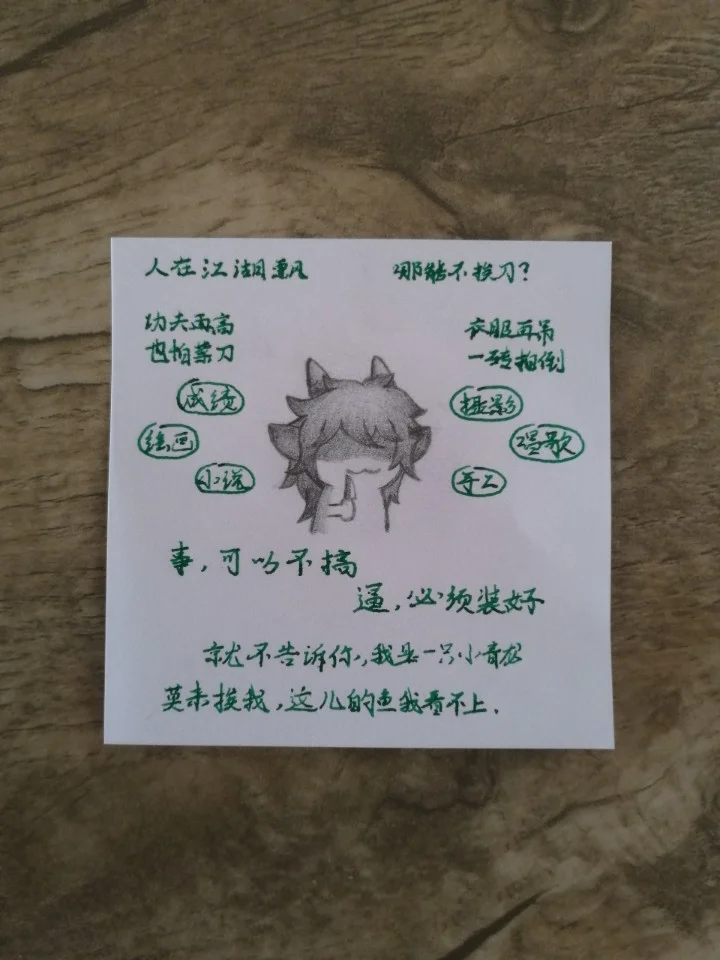 人在江湖飘
哪能不挨刀?
功夫再高
也怕菜刀
衣服再吊
一砖拍倒
成绩
绘画
小说
摄影
唱歌
手工
事,可以不搞
逼,必须装好
就不告诉你,我是一只小青龙
莫来挨我,这儿的鱼我看不上.